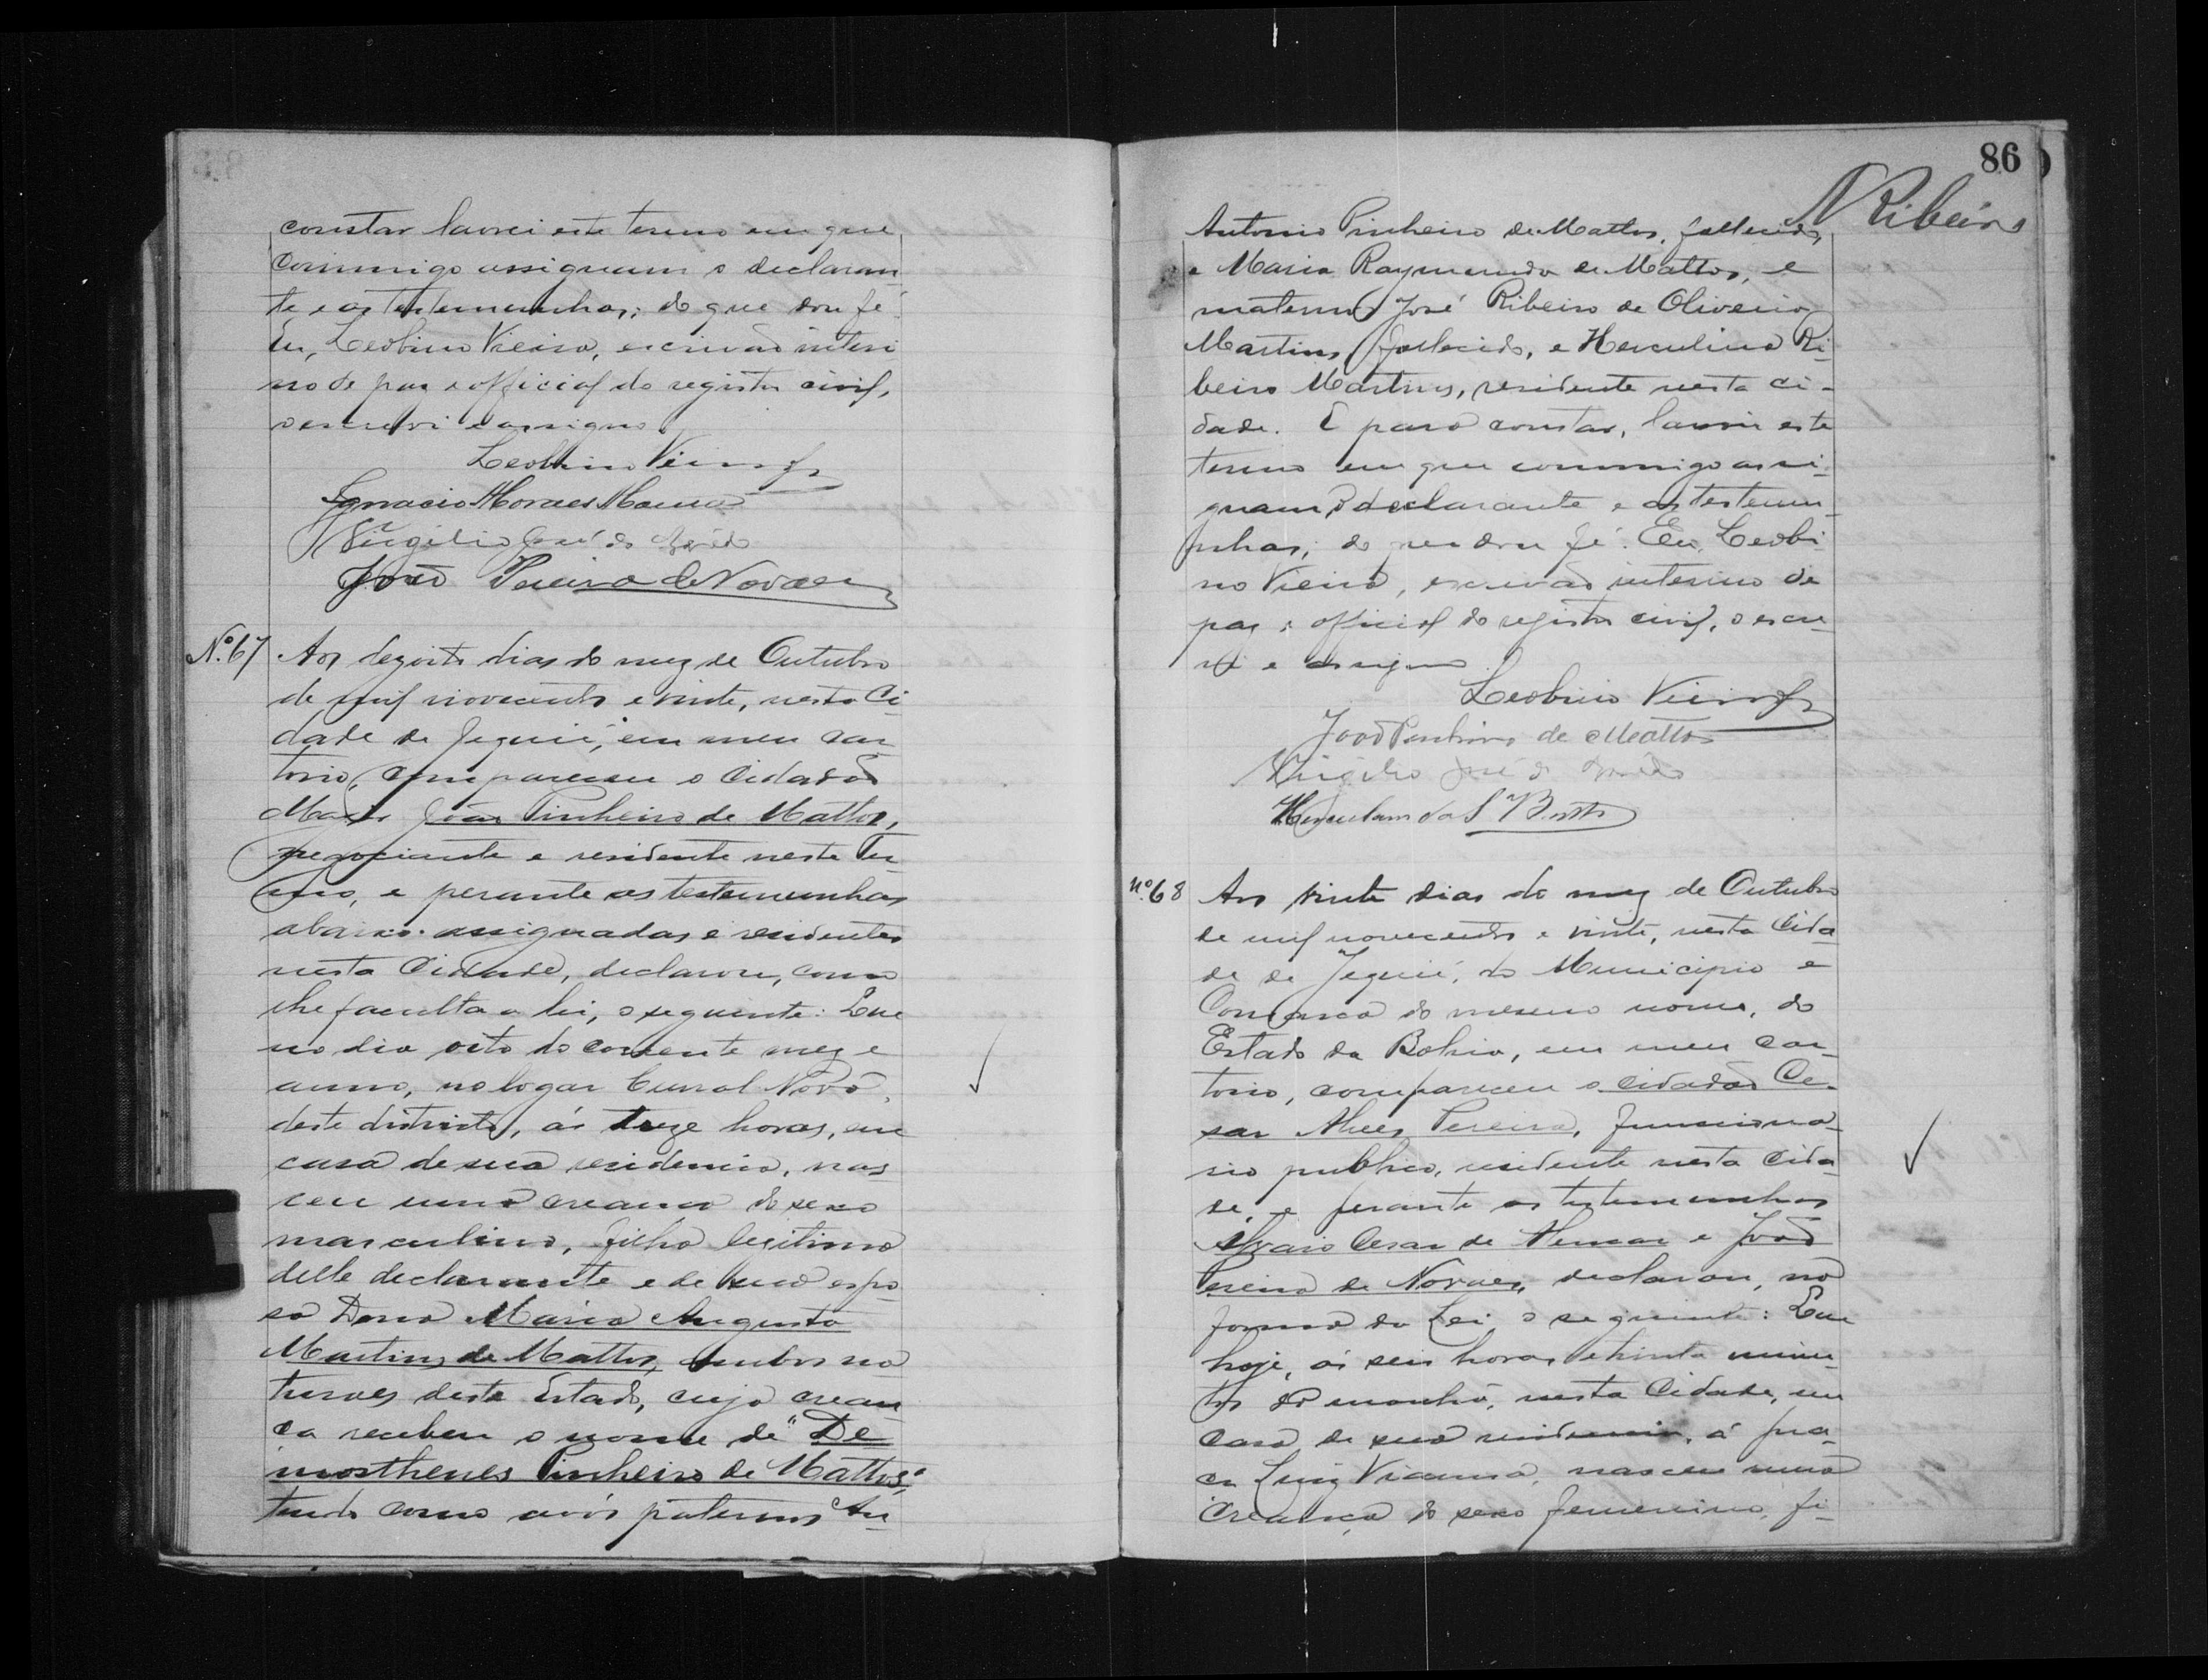 constar lavrei este termo em que
commigo assignam o declaran
te e as testemunhas; do que dou fé.
Eu, Leobino Vieira, escrivão interi
no de paz e official do registro civil,
o escrevi e assigno.
Leobino Vieira
Ignacio Moraes
Virgilio José de
João Pereira de Novaes
Nº. 67
Aos dezoito dias do mez de Outubro
de mil novecentos e vinte, nesta Ci-
dade de Jequié, em meu car
torio, compareceu o cidadão
Major João Pinheiro de Mattos,
negociante e residente neste Ter-
mo, e perante as testemunhas
abaixo assignadas e residentes
nesta Cidade, declarou, como
lhe faculta a lei, o seguinte: Que
no dia oito do corrente mez e
anno, no logar Curral Novo,
deste districto, ás treze horas, em
casa de sua residencia, nas
ceu uma creança do sexo
masculino, filho legitimo
delle declarante e de sua espo-
sa Dona Maria Augusta
Martins de Mattos, ambos na
turaes deste Estado, cuja crean-
ça recebeu o nome de "De
mosthenes Pinheiro de Mattos",
tendo como avós paternos An-
86
N Ribeiro
Antonio Pinheiro de Mattos, fallecido,
e Maria Raymunda de Mattos, e
maternos José Ribeiro de Oliveira
Martins, fallecido, e Herculina Ri-
beiro Martins, residente nesta ci-
dade. E para constar, lavrei este
termo em que commigo assi-
gnam o declarante e as testemu-
nhas; do que dou fé. Eu, Leobi-
no Vieira, escrivão interino de
paz e official do registro civil, o escre-
vi e assigno.
Leobino Vieira
João Pinheiro de Mattos
Virgilio José de
Herculano da S
Nº. 68
Aos vinte dias do mez de Outubro
de mil novecentos e vinte, nesta Cida-
de de Jequié, do Municipio e
Comarca do mesmo nome, do
Estado da Bahia, em meu car-
torio, compareceu o cidadão Ce-
sar Alves Pereira, funcciona-
rio publico, residente nesta Cida-
de, e perante as testemunhas
Cesar de Alencar e João
Pereira de Novaes, declarou, na
forma da Lei, o seguinte: Que
hoje, ás seis horas e trinta minu-
tos da manhã, nesta Cidade, em
casa de sua residencia, á pra-
ça Luiz Vianna, nasceu uma
creança do sexo femenino, fi-